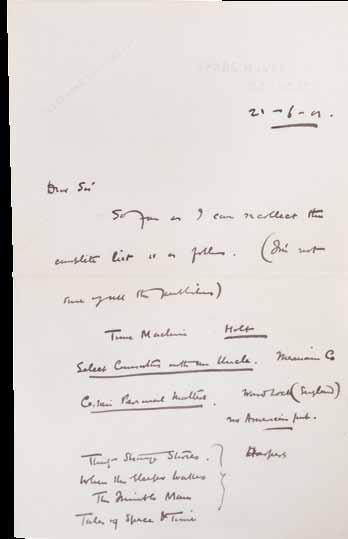 21-6-01.
Dear Sir
So far as I can recollect the
complete list is as follows. (I'm not
sure of all the publishers)
Time Machine Holt
Select Conversations with an Uncle. Merriam Co
Certain Personal Matters. Ward Lock (England)
no American pub.
Three Strange Stories. } Harpers
When the Sleeper Wakes
The Invisible Man
Tales of Space & Time